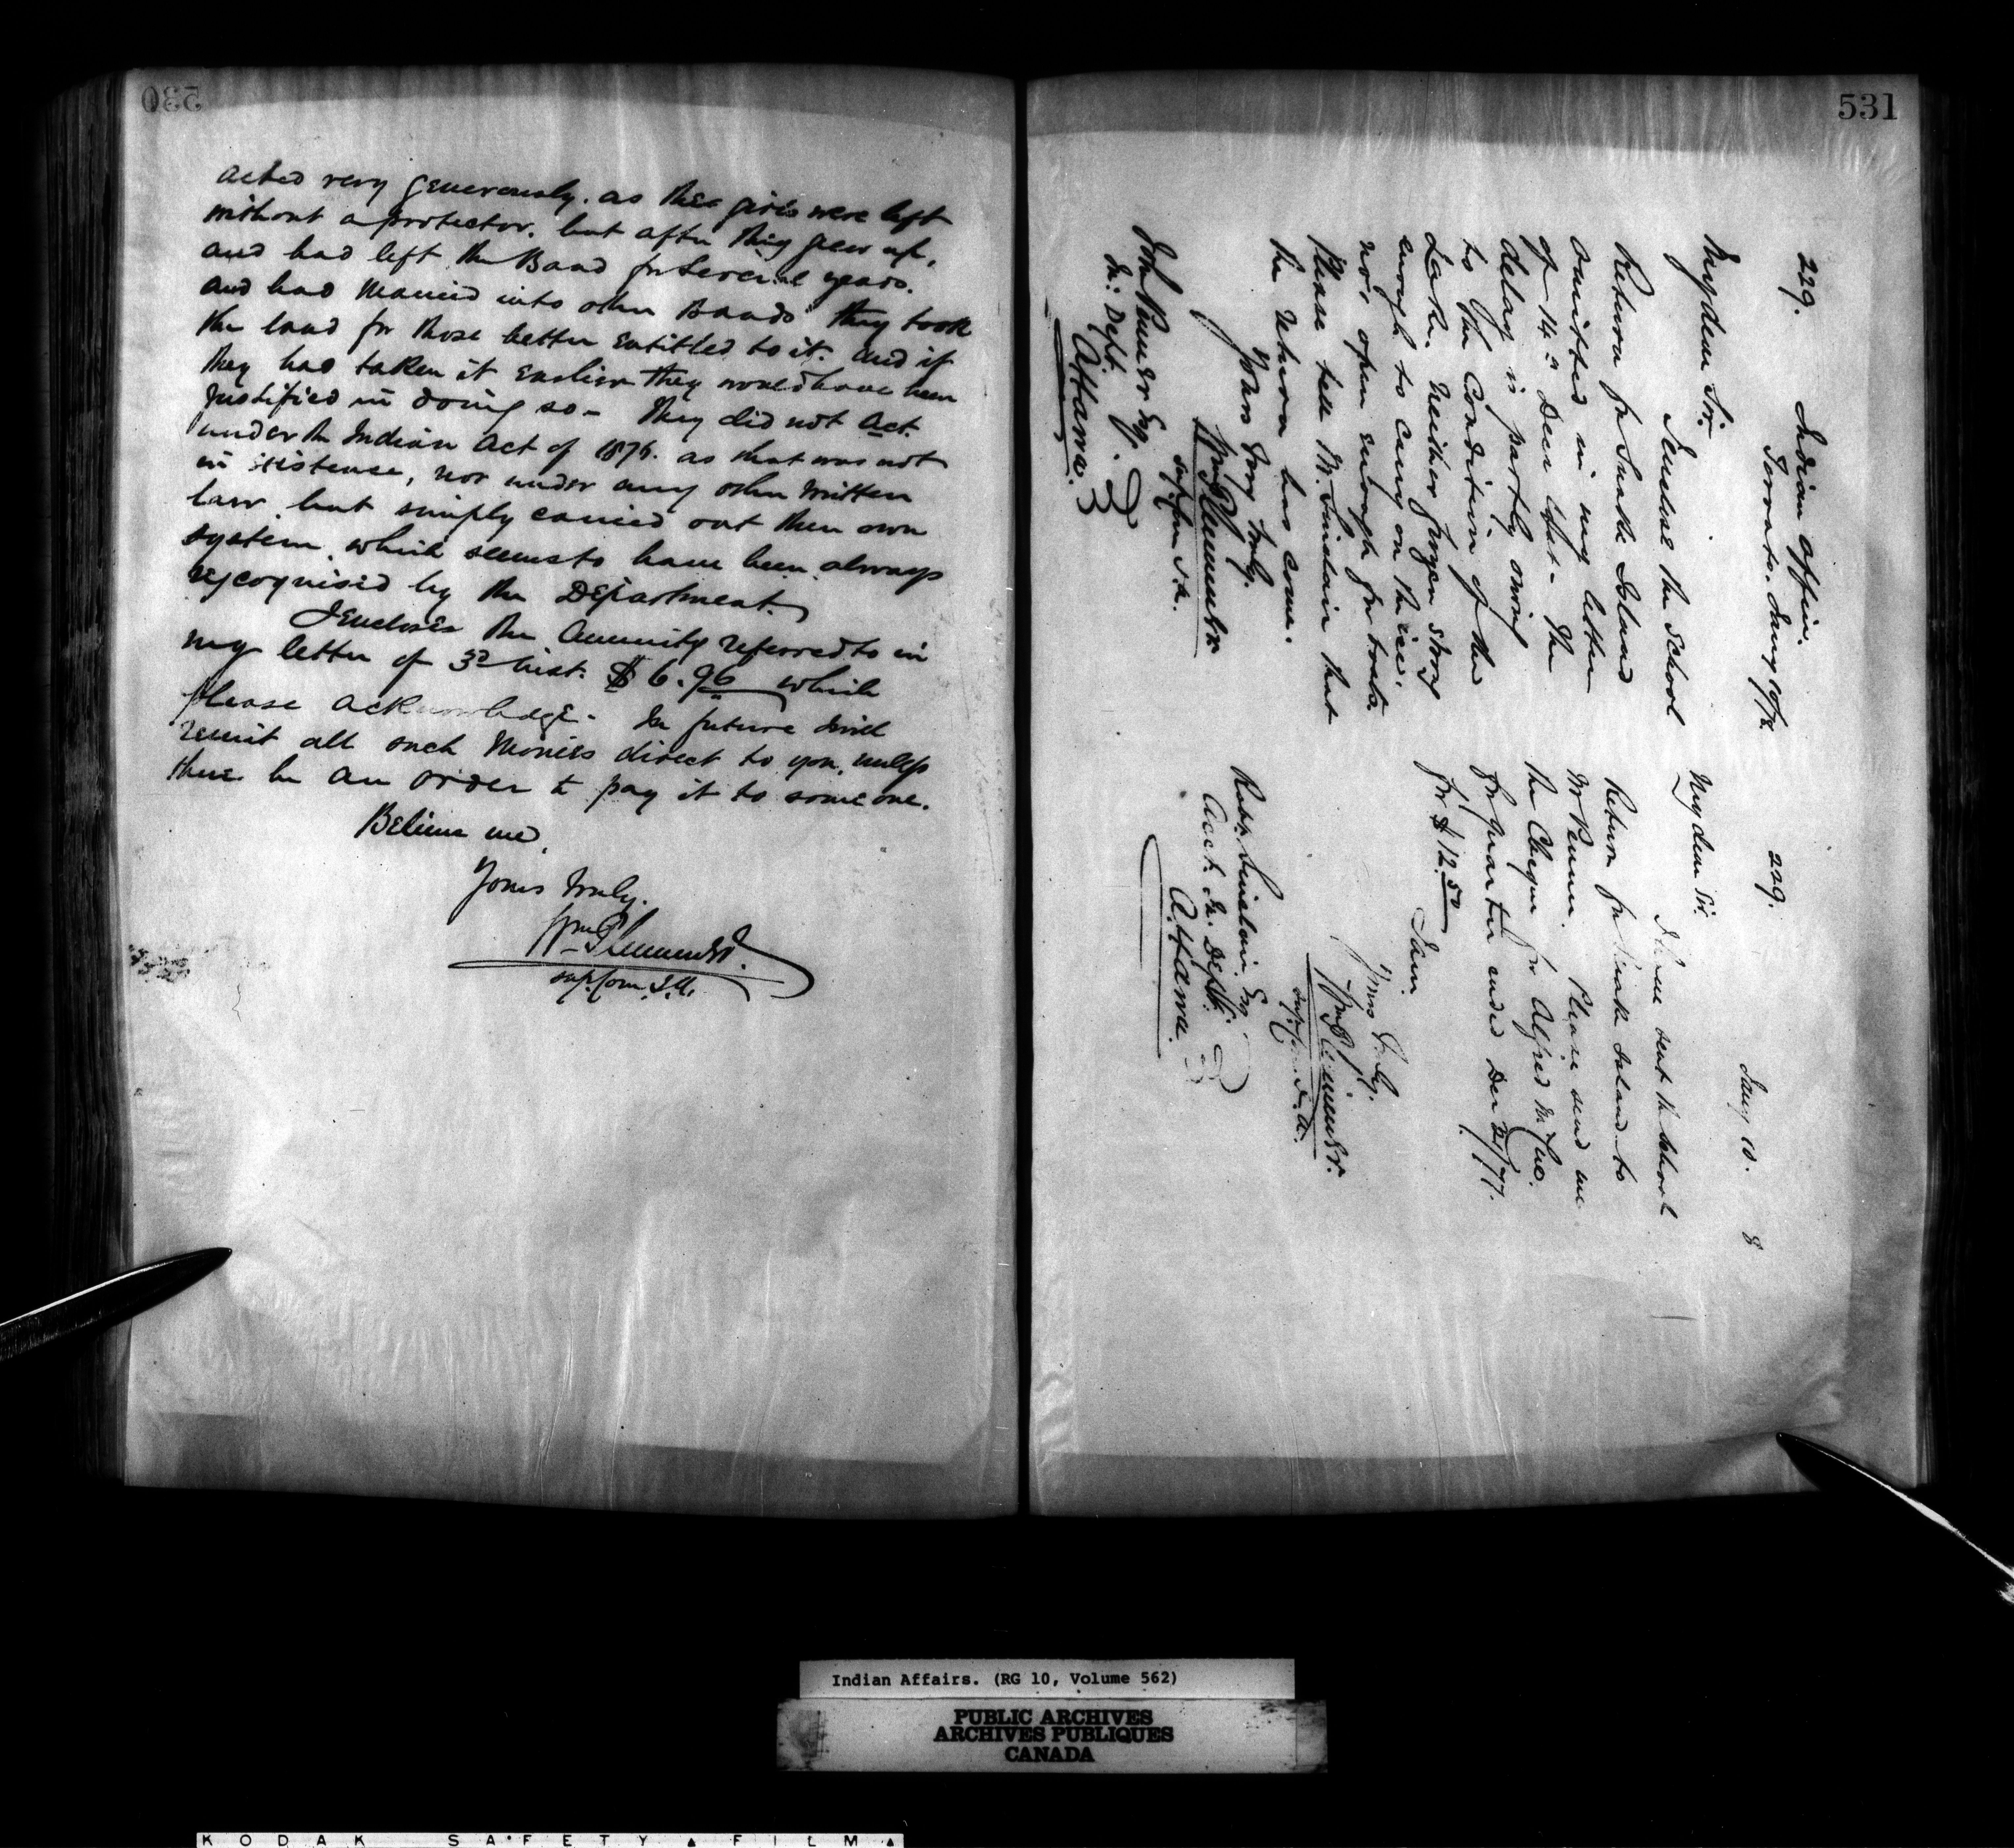 530
acted very generously. as these girls were left
without a protector. but after they grew up,
and had left the Band for several years.
and had married into other Bands they took
the land for those better entitled to it. and if
they had taken it earlier they would have been
justified in doing so – They did not act
under the Indian Act of 1876. as that was not
in existence, nor under any other written
law. but simply carried out their own
system. which seems to have been always
recognised by the Department.
I enclose the Annuity referred to in
my letter of 3d inst. $6.96 which
please acknowledge. In future I will
remit all such monies direct to you, unless
there be an order to pay it to some one.
Believe me,
Yours truly.
Wm Plummer
Sup. Com. I.A.
531
229.
Indian Office.
Toronto. Jany 10/78
My dear Sir.
I enclose the School
Return for Snake Island
omitted in my letter
of 14th Decr last – The
delay is partly owing
to the condition of the
Lake. Neither frozen strong
enough to carry on the ice,
nor open enough for boats.
Please tell Mr. Sinclair that
the return has come.
Yours very truly.
Wm Plummer
Sup. Com. I.A.
John Penner Esq
In: Dept.
Ottawa.
229.
Jany 10. 8
My dear Sir.
I have sent the School
Return for Snake Island to
Mr Penner. Please send me
the Cheque for Alfred McCue.
for quarter ended Dec 31/77.
for $12.50
I am.
Yours truly.
Wm Plummer.
Sup. Com. I.A.
Robt. Sinclair, Esq
Acct. In: Dept.
Ottawa.
Indian Affairs. (RG 10, Volume 562)
PUBLIC ARCHIVES
ARCHIVES PUBLIQUES
CANADA
KODAK SAFETY FILM